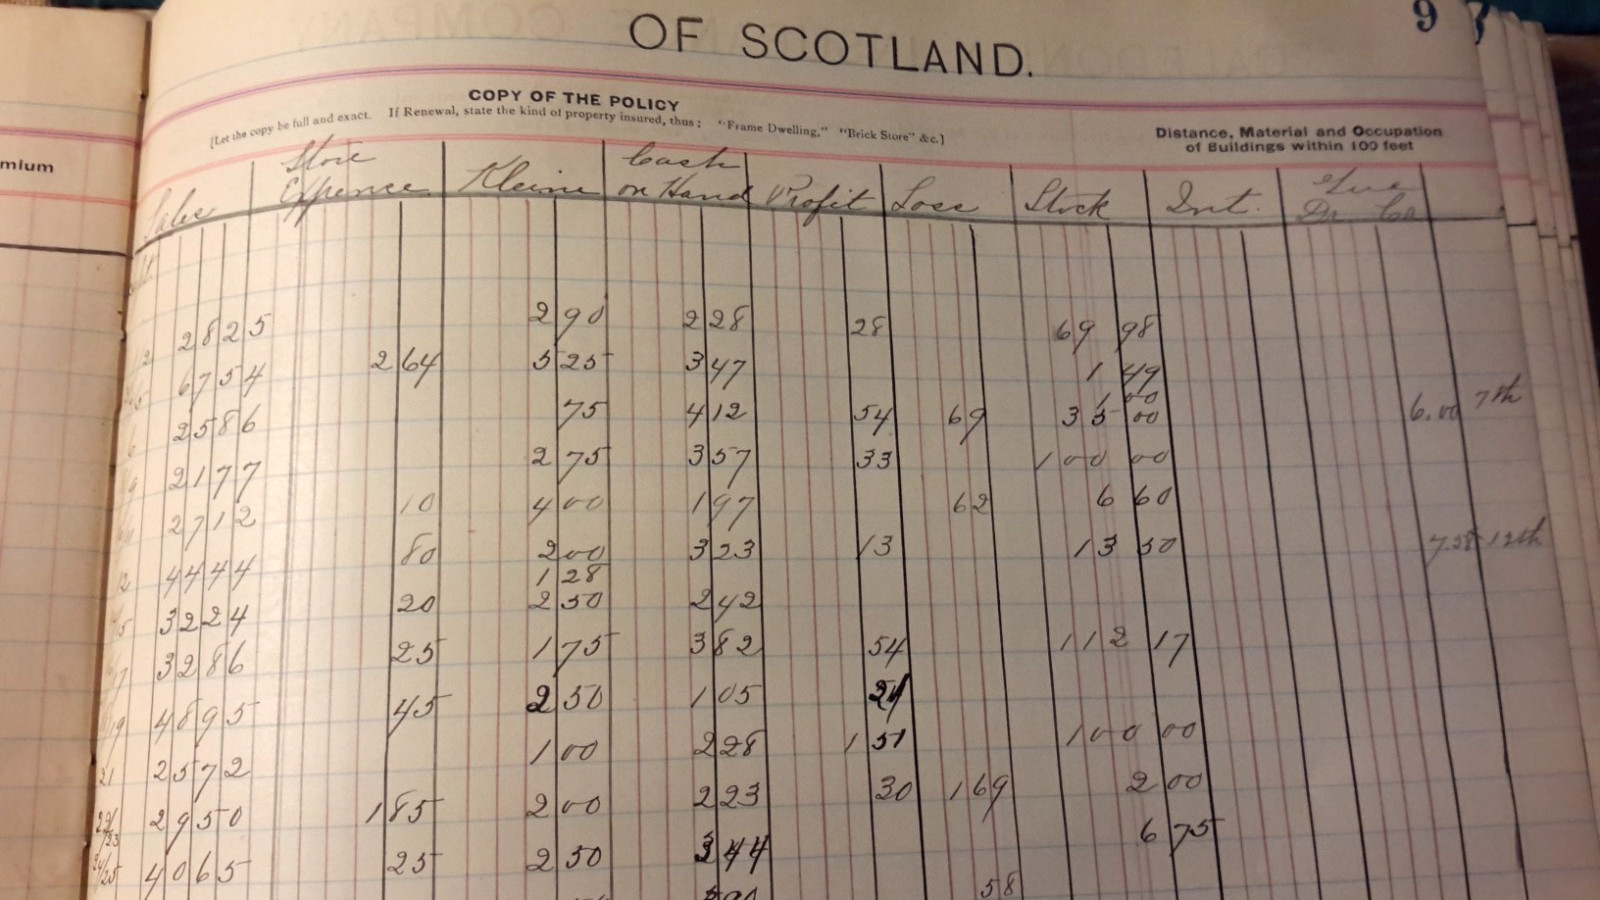 9
OF SCOTLAND.
COPY OF THE POLICY
[Let the copy be full and exact. If Renewal, state the kind of property insured, thus; "Frame Dwelling," "Brick Store" &c.]
Distance, Material and Occupation
of Buildings within 100 feet
mium
Sales Store Expence Kleine Cash on Hand Profit Loss Stock Int. Dr. Cr.
2825 2 90 2 28 28 69 98
6754 2 64 5 25 3 47 1 49
1 00
2586 75 4 12 54 69 35 00 6.00 7th
2177 2 75 3 57 33 100 00
2712 10 4 00 1 97 62 6 60
4444 80 2 00 3 23 13 13 50 7.58 12th
1 28
3224 20 2 50 2 42
3286 25 1 75 3 82 54 112 17
19 4895 45 2 50 1 05 24
21 2572 1 00 2 28 1 51 100 00
22/23 2950 1 85 2 00 2 23 30 1 69 2 00
24/25 4065 25 2 50 3 44 6 75
58